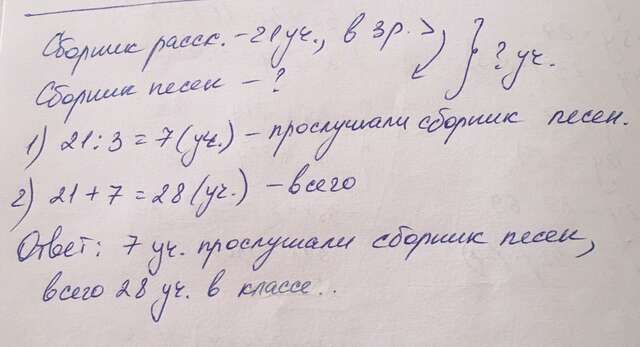 Сборник расск. - 21 уч., в 3 р. >
Сборник песен - ? } ? уч.
1) 21 : 3 = 7 (уч.) - прослушали сборник песен.
2) 21 + 7 = 28 (уч.) - всего
Ответ: 7 уч. прослушали сборник песен,
всего 28 уч. в классе..